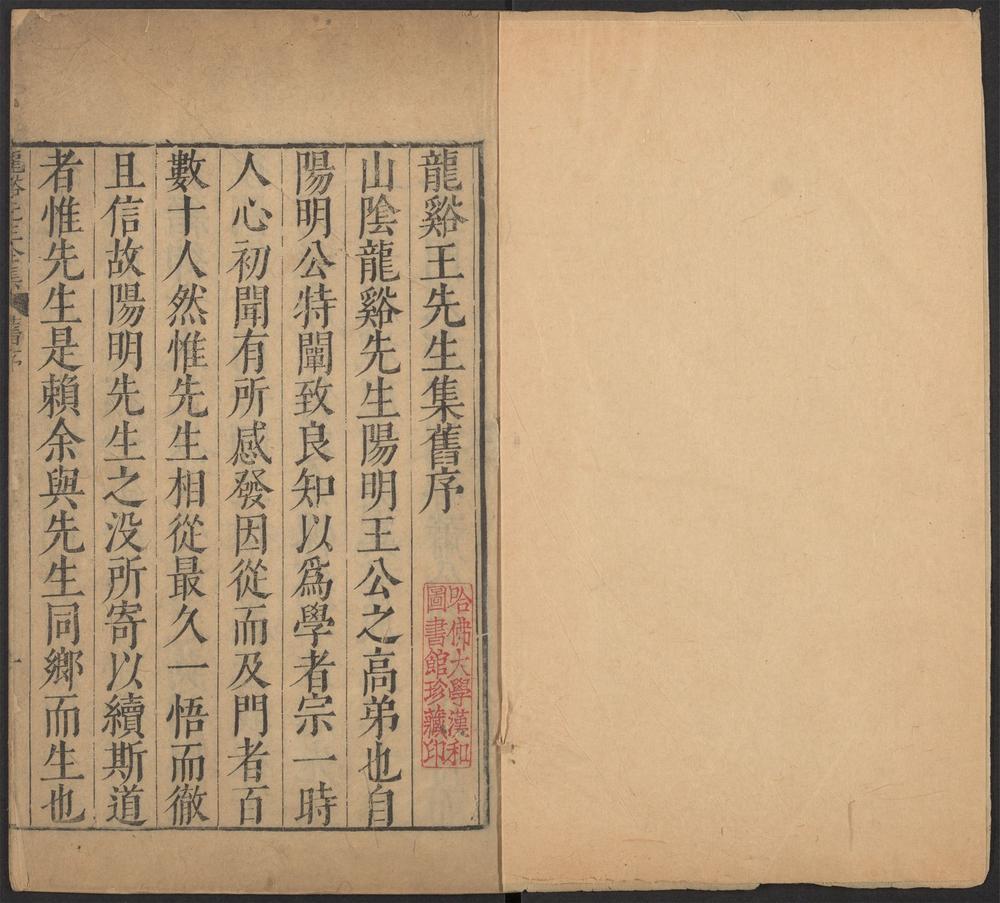 龍谿王先生集舊序
哈佛大學漢和
圖書館珍藏印
山隂龍谿先生陽明王公之高弟也自
陽明公特闡致良知以爲學者宗一時
人心初聞有所感發因從而及門者百
數十人然惟先生相從最久一悟而徹
且信故陽明先生之没所寄以續斯道
者惟先生是賴余與先生同鄉而生也
舊序
一